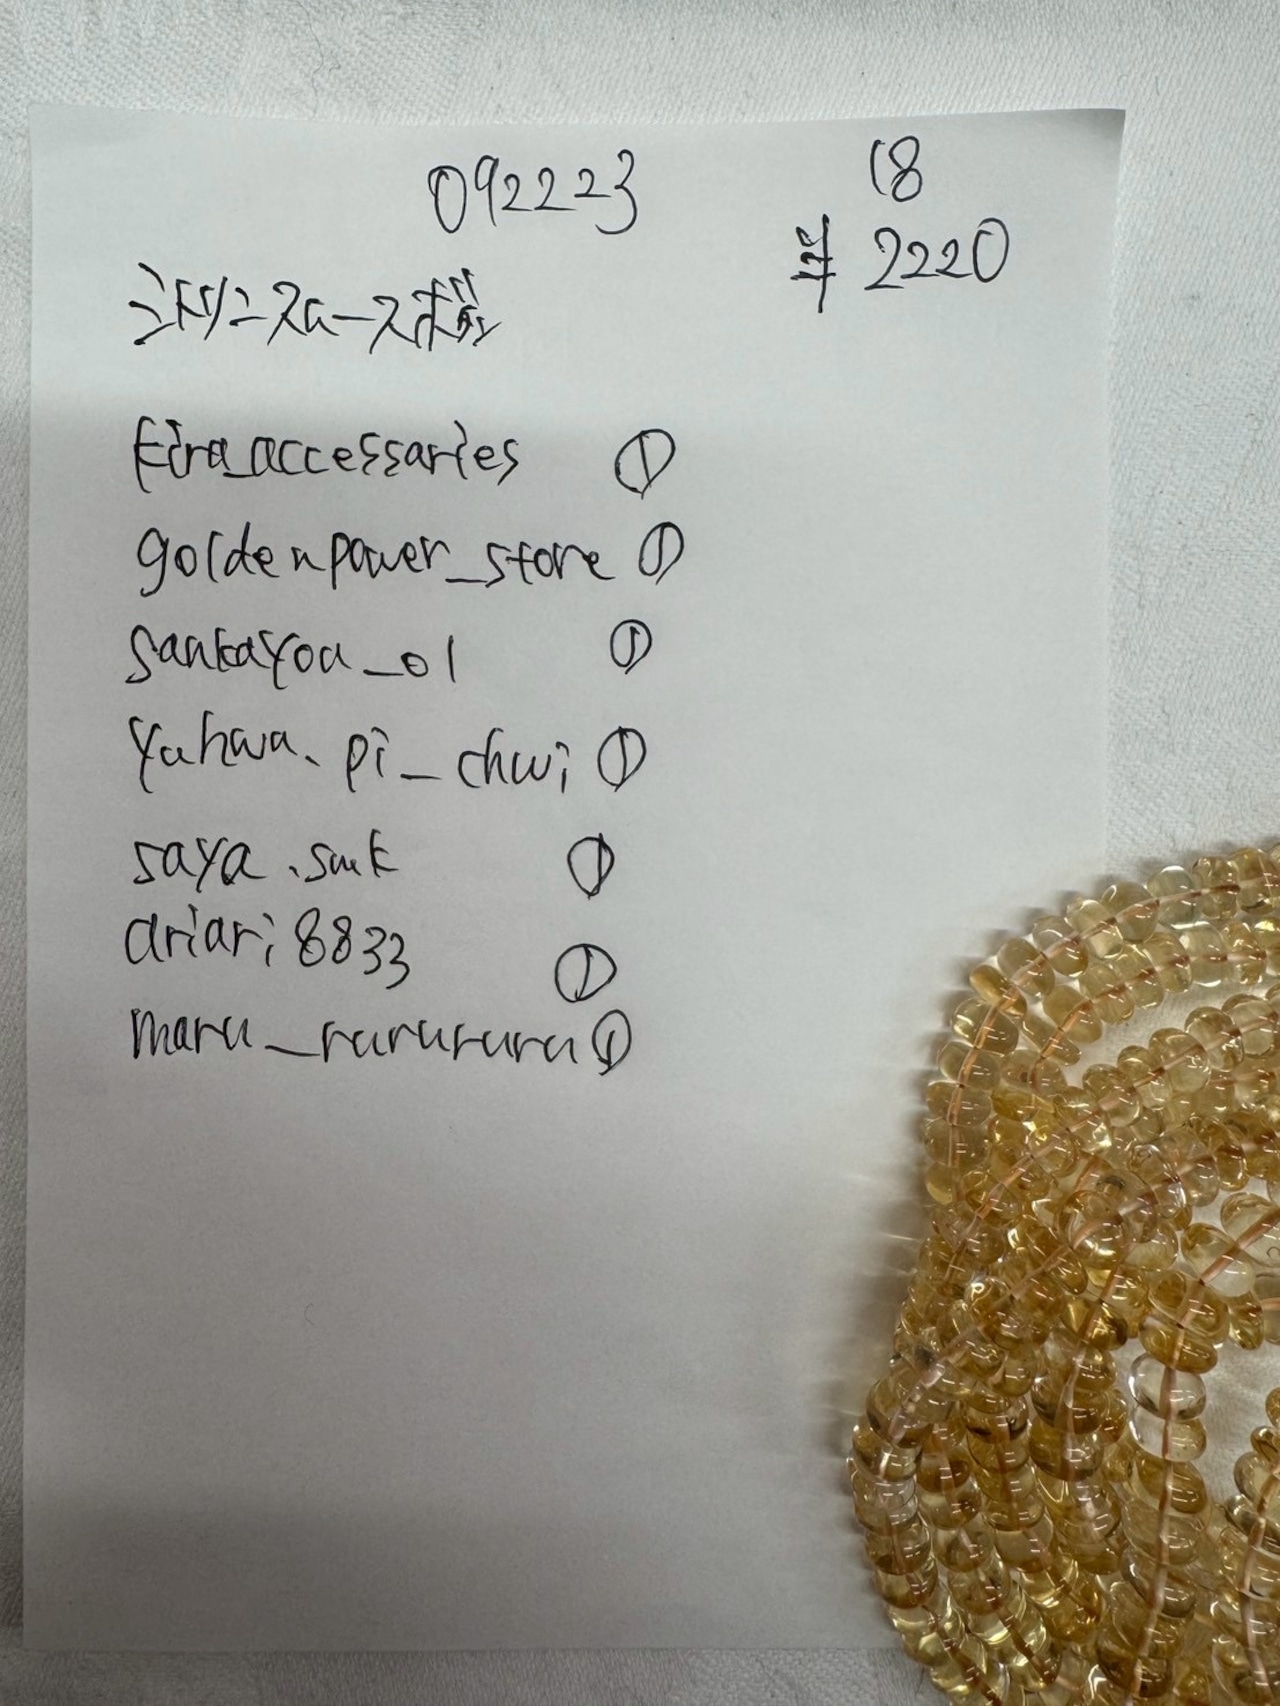 092223
18
¥ 2220
シトリンスムースボタン
kira_accessaries ①
goldenpower_store ①
sankayou_01 ①
yuhwa.pi_chwi ①
saya.smk ①
ariari8833 ①
maru_rurururu ①